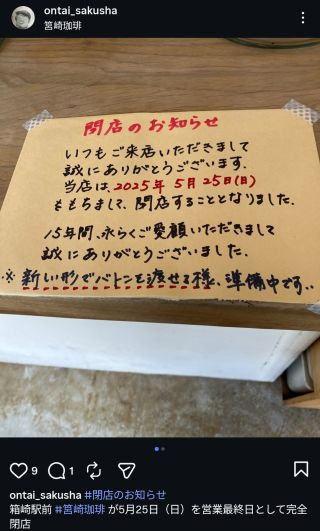 ontai_sakusha
筥崎珈琲
閉店のお知らせ
いつもご来店いただきまして
誠にありがとうございます。
当店は、2025年5月25日(日)
をもちまして、閉店することとなりました。
15年間、永らくご愛顧いただきまして
誠にありがとうございました。
※新しい形でバトンを渡せる様、準備中です..
9
1
ontai_sakusha #閉店のお知らせ
箱崎駅前 #筥崎珈琲 が5月25日（日）を営業最終日として完全
閉店